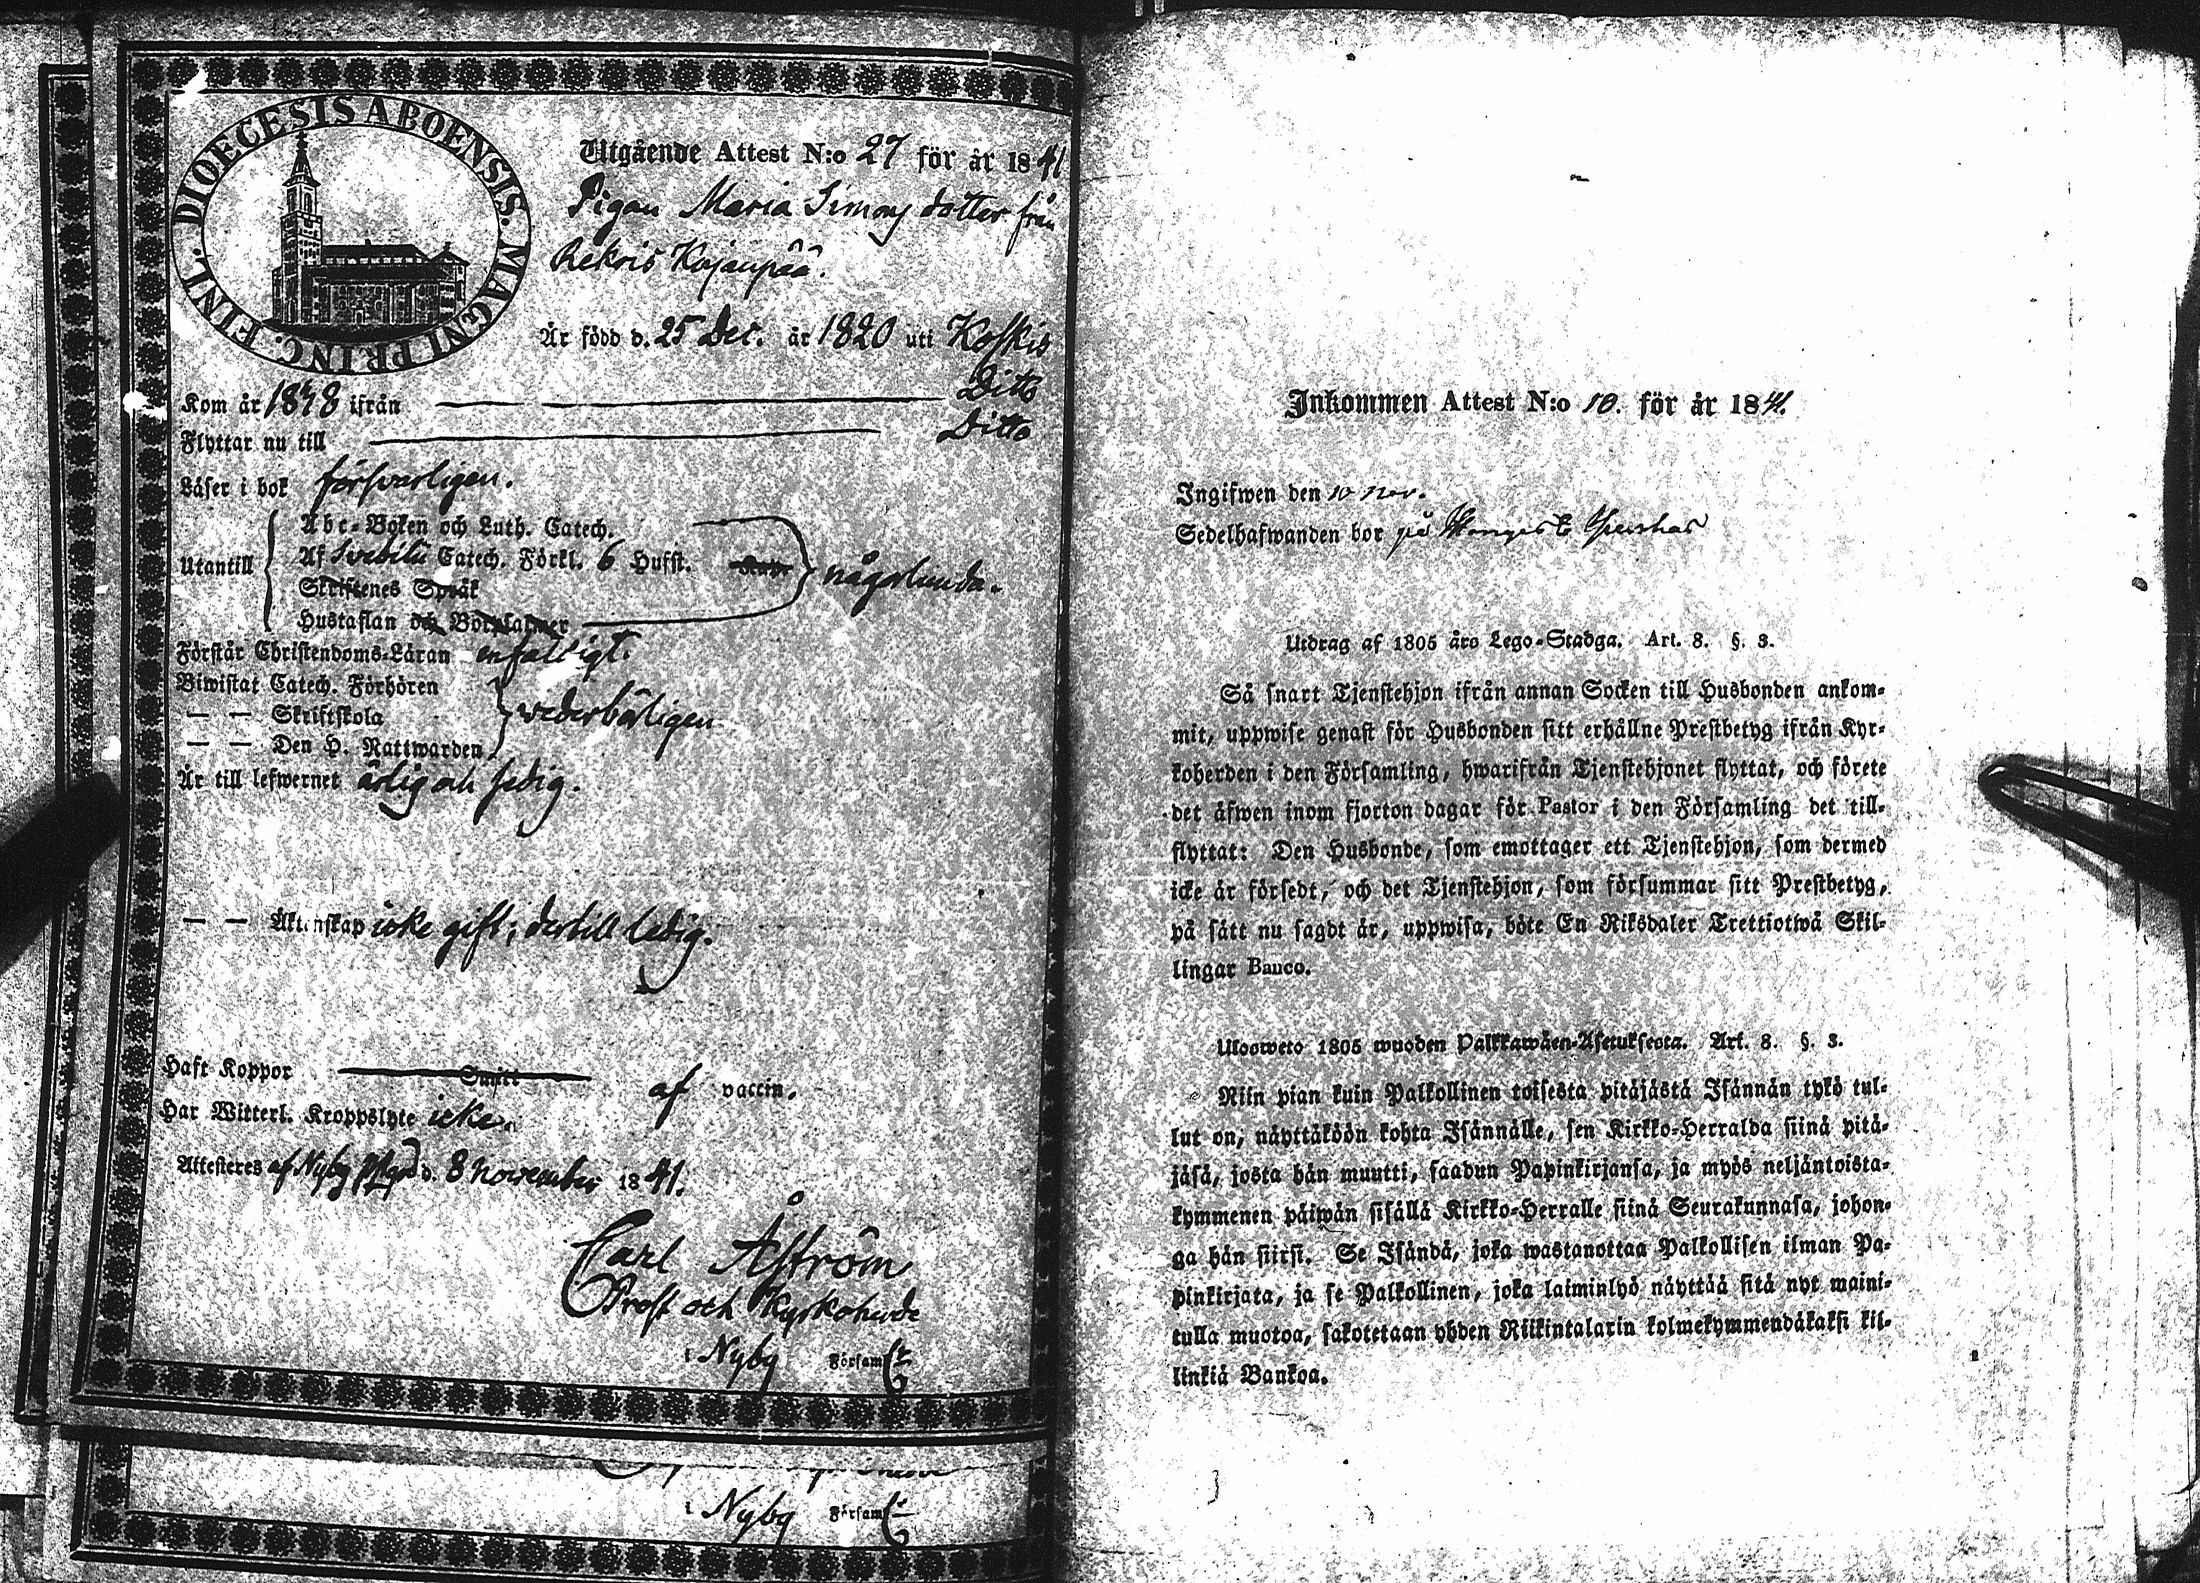 DIOECESIS ABOENSIS. MAGNI PRINC. FINL.
Utgående Attest N:o 27 för år 1841
Pigan Maria Simons dotter från
Rekois Kojanpää.
Är född d. 25 Dec. år 1820 uti Koskis
Kom år 1838 ifrån Ditto
Flyttar nu till Ditto
Läser i bok försvarligen.
Utantill
Abc-Boken och Luth. Catech.
Af Svebilii Catech. Förkl. 6 Hufst. någorlunda.
Skriftenes Språk
Hustaflan och Botpsalmer
Förstår Christendoms-Läran enfaldigt.
Biwistat Catech. Förhören
— — Skriftskola wederbörligen
— — Den H. Nattwarden
Är till lefwernet ärlig och sedig.
— — Äktenskap icke gift; dertill ledig.
Haft Koppor Smitt af vaccin.
Har Witterl. Kroppslyte icke.
Attesteras af Nyby Pgd d. 8 November 1841.
Carl Åström
Prost och Kyrkoherde
i Nyby Församl
i Nyby Församl
Inkommen Attest N:o 10. för år 1841.
Ingifwen den 10 nov.
Sedelhafwanden bor på
Utdrag af 1805 års Lego-Stadga. Art. 8. §. 3.
Så snart Tjenstehjon ifrån annan Socken till Husbonden ankom-
mit, uppwise genast för Husbonden sitt erhållne Prestbetyg ifrån Kyr-
koherden i den Församling, hwarifrån Tjenstehjonet flyttat, och förete
det äfwen inom fjorton dagar för Pastor i den Församling det till-
flyttat: Den Husbonde, som emottager ett Tjenstehjon, som dermed
icke är försedt, och det Tjenstehjon, som försummar sitt Prestbetyg,
på sätt nu sagdt är, uppwisa, böte En Riksdaler Trettiotwå Skil-
lingar Banco.
Uloosweto 1805 wuoden Palkkawäen-Asetuksesta. Art. 8. §. 3.
Niin pian kuin Palkollinen toisesta pitäjästä Isännän tykö tul-
lut on, näyttäköön kohta Isännälle, sen Kirkko-Herralda siinä pitä-
jäsä, josta hän muutti, saadun Papinkirjansa, ja myös neljäntoista-
kymmenen päiwän sisällä Kirkko-Herralle siinä Seurakunnasa, johon-
ga hän siirsi. Se Isändä, joka wastanottaa Palkollisen ilman Pa-
pinkirjata, ja se Palkollinen, joka laiminlyö näyttää sitä nyt maini-
tulla muotoa, sakotetaan yhden Riikintalarin kolmekymmendäkaksi kil-
linkiä Bankoa.